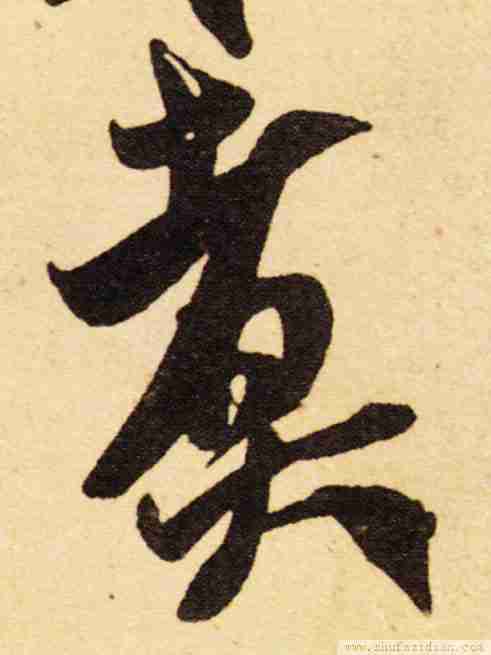 煮
www.shufazidian.com